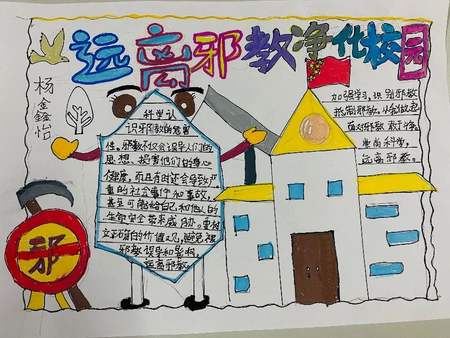 远离邪教净化校园
杨金鑫怡
科学认
识邪教的危害
性。邪教不仅会误导人们的
思想,损害他们的身心
健康,而且有时还会导致严
重的社会事件和事故,
甚至可能给自己和他人的
生命安全带来威胁。要树
立正确的价值观,避免被
邪教误导和影响,
远离邪教。
加强学习,识别邪教
抵制邪教,从我做起
崇尚科学,
远离邪教。
邪